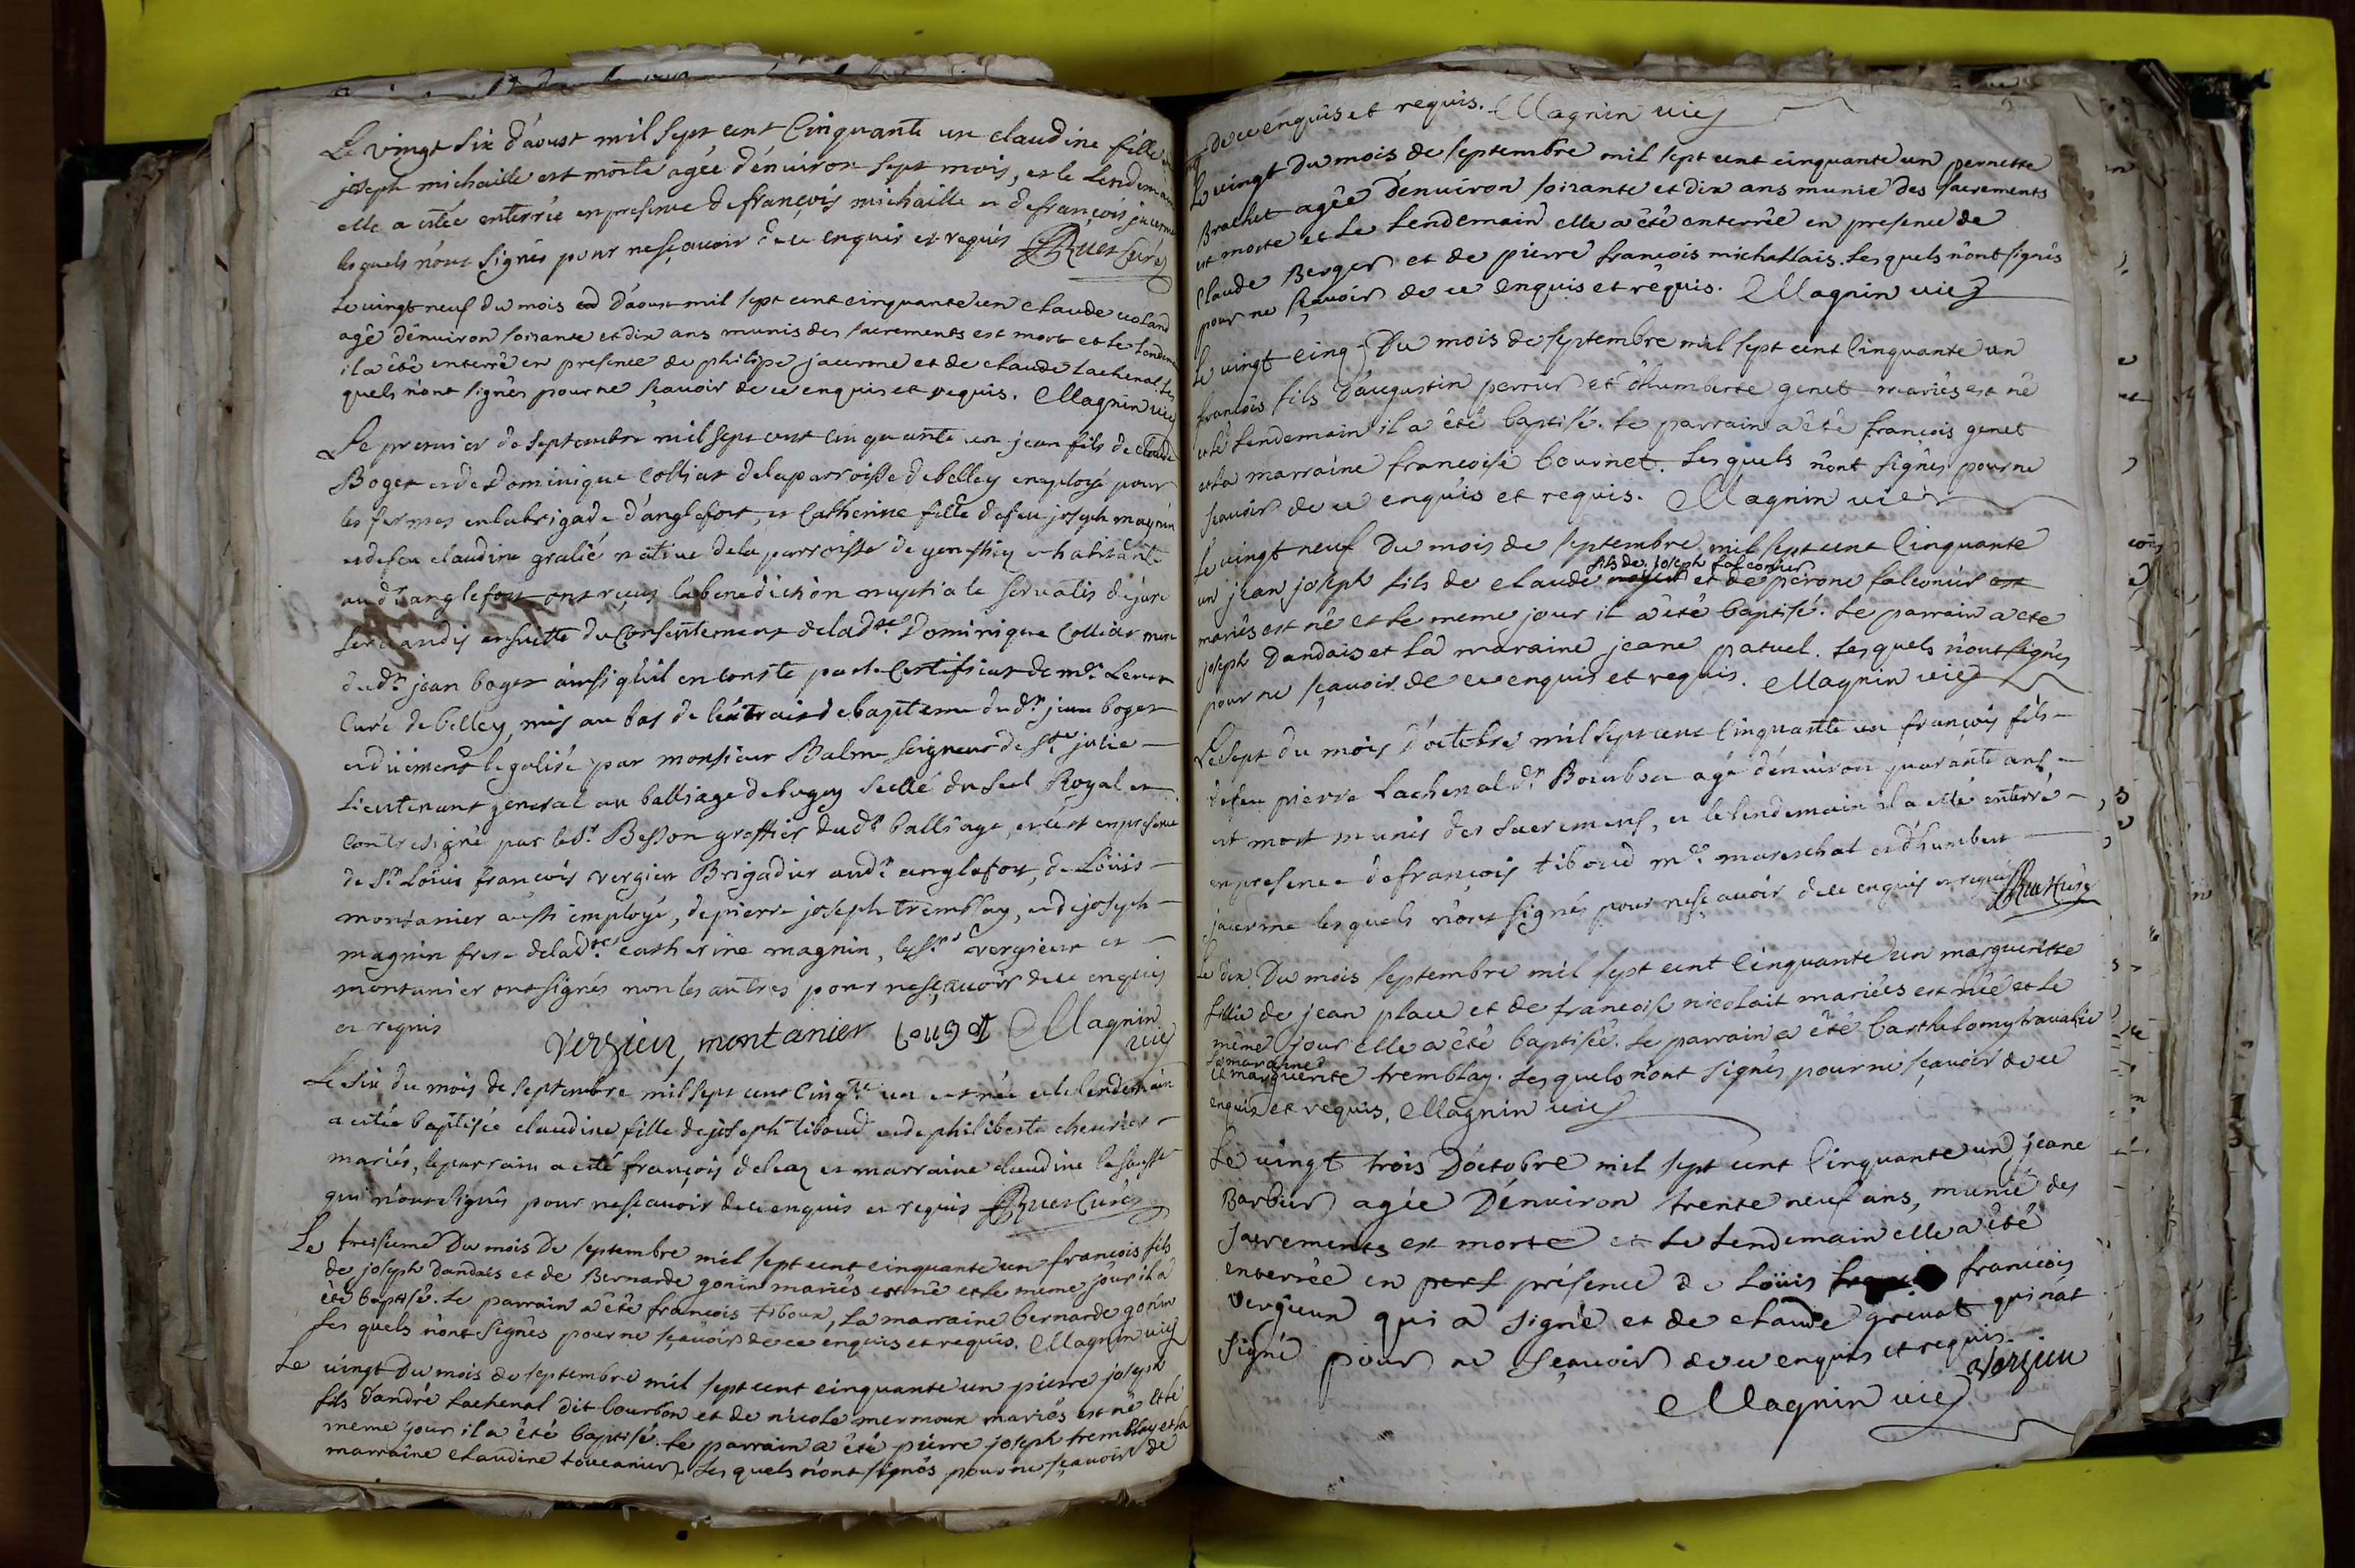 Le vingt six d'aoust mil sept cent Cinquante un claudine fille
joseph michaille est morte agée d'énuiron sept mois, et le Lendemain
elle a estée enterrée en presence de françois michaille et de françois jacerme
lesquels n'ont signés pour nesçauoir de ce enquis et requis Curé
Le vingt neuf du mois d'aoust mil sept cent cinquante un claude uoland
agé d'enuiron soixante et dix ans munis des sacrements est mort et le Lendem
il a été enterré en presence de philipe jacerme et de claude Lachenal Les
quels n'ont signés pour ne sçauoir de ce enquis et requis. Magnin vic
Le premier de septembre mil sept cent cinquante un jean fils de claude
Boget et de Dominique Colliat de la parroisse de belley employé pour
les fermes en la brigade d'anglefort, et Catherine fille de feu joseph magnin
et de feu claudine gralié natiue de la parroisse de et habitante
aud.t anglefort ont reçus la benediction nuptiale seruatis de jure
seruandis ensuitte du Consentement de lad.te Dominique Colliat mere
dud.t jean boget ainsi qu'il en conste par le Certificat de m.r
Curé de belley, mis au bas de l'extrait de bapteme dud.t jean boget
et duement legalisé par monsieur Balme seigneur de S.te julie
Lieutenant general au balliage de bugey scellé du scel Royal et
Contresigné par le S.r Besson greffier dud.t balliage, et c'est en presence
de S.r Loüis françois vergieu Brigadier aud.t anglefort, de Loüis
montanier aussi employé, de pierre joseph tremblay, et de joseph
magnin frere de lad.te catherine magnin, les S.rs vergieu et
montanier ont signés non les autres pour nesçauoir de ce enquis
et requis
Verzieu, montanier bouget Magnin
vic
Le six du mois de septembre mil sept cent cinq.te un est née et le lendemain
a estée baptisée claudine fille de joseph tiboud et de philiberte cheurier
mariés, le parrain a esté françois deleaz et marraine claudine
qui n'ont signés pour nesçauoir de ce enquis et requis Curé
Le treisieme Du mois De septembre mil sept cent cinquante un francois fils
de joseph dandais et de Bernarde gonin mariés est né et le meme jour il a
été baptisé. Le parrain a été francois tiboux, La marraine bernarde gonin
Les quels n'ont signés pour ne sçauoir de ce enquis et requis. Magnin vic
Le vingt Du mois de septembre mil sept cent cinquante un pierre joseph
fils d'andré Lachenal dit bourbon et de nicole mermoux mariés est né et le
meme jour il a été baptisé. Le parrain a été pierre joseph tremblay et la
marraine claudine toucanier. Les quels n'ont signés pour ne sçauoir de
de ce enquis et requis. Magnin vic
Le vingt du mois de septembre mil sept cent cinquante un pernette
Brachet agée d'enuiron soixante et dix ans munie des sacrements
est morte et Le Lendemain elle a été enterrée en presence de
Claude Berger et de pierre francois michallais. Les quels n'ont signés
pour ne sçauoir de ce enquis et requis. Magnin vic
Le vingt cinq Du mois de septembre mil sept cent Cinquante un
francois fils d'augustin perrier et d'humberte genet mariés est né
et Le Lendemain il a été baptisé. Le parrain a été françois genet
et La marraine francoise bournet. Les quels n'ont signés pour ne
sçauoir de ce enquis et requis. Magnin vic
Le vingt neuf Du mois de septembre mil sept cent Cinquante
fils de joseph falconier
un jean joseph fils de claude et de perone falconier est
mariés est né et Le meme jour il a été baptisé. Le parrain a ete
joseph Dandais et La maraine jeane patuel. Les quels n'ont signés
pour ne sçauoir de ce enquis et requis. Magnin vic
Le sept du mois d'octobre mil sept cent Cinquante un françois fils
de feu pierre Lachenal d.t Bourbon agé d'enuiron quarante ans
est mort munis des sacremens, et le lendemain il a esté enterré
en presence de françois tiboud m.e mareschal et d'humbert
jacerme lesquels n'ont signés pour nesçauoir de ce enquis et requis Curé
Le dix Du mois septembre mil sept cent Cinquante un margueritte
fillie de jean place et de francoise nicolait mariées est née et Le
même jour elle a été baptisée. Le parrain a été barthelomy trauallie
La maraine
et marguerite tremblay. Les quels n'ont signés pour ne sçauoir de ce
enquis et requis, Magnin vic
Le vingt trois D'octobre mil sept cent Cinquante un jeane
Barbier agée D'enuiron trente neuf ans, munie des
sacrements est morte et Le Lendemain elle a été
enterrée en pres présence de Loüis francois
vergieux qui a signé et de claude greuat qui n'at
signé pour ne sçauoir de ce enquis et requis.
Verzieu
Magnin vic